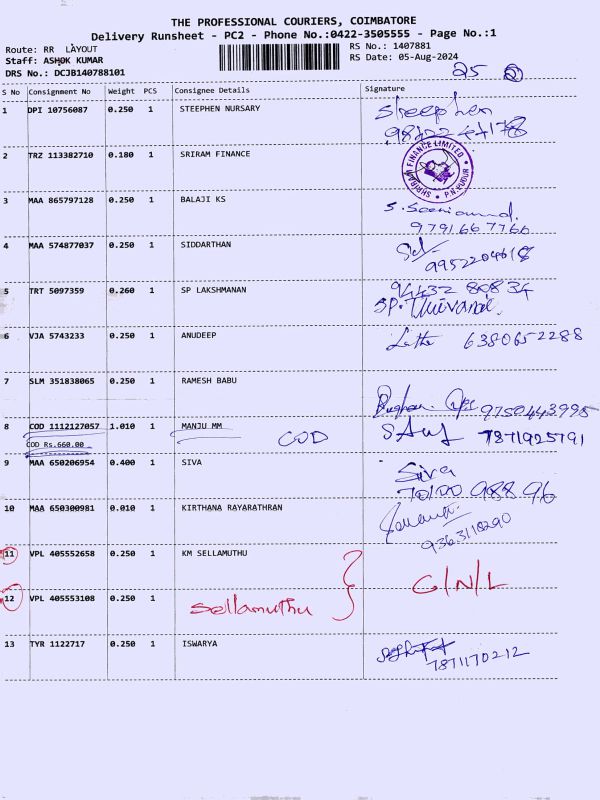 THE PROFESSIONAL COURIERS, COIMBATORE
Delivery Runsheet - PC2 - Phone No.:0422-3505555 - Page No.:1
Route: RR LAYOUT RS No.: 1407881
Staff: ASHOK KUMAR RS Date: 05-Aug-2024
DRS No.: DCJB140788101 25
S No Consignment No Weight PCS Consignee Details Signature
1 DPI 10756087 0.250 1 STEEPHEN NURSARY Steephen
2 TRZ 113382710 0.180 1 SRIRAM FINANCE SHRIRAM FINANCE LIMITED P.N.PUDUR
3 MAA 865797128 0.250 1 BALAJI KS
9791667766
4 MAA 574877037 0.250 1 SIDDARTHAN
9952204618
5 TRT 5097359 0.260 1 SP LAKSHMANAN 94432 80834
6 VJA 5743233 0.250 1 ANUDEEP Latha 6380652288
7 SLM 351838065 0.250 1 RAMESH BABU
9750443995
8 COD 1112127057 1.010 1 MANJU MM COD 7871925791
COD Rs.660.00
9 MAA 650206954 0.400 1 SIVA Siva
70100 98896
10 MAA 650300981 0.010 1 KIRTHANA RAYARATHRAN
9363118290
11 VPL 405552658 0.250 1 KM SELLAMUTHU
12 VPL 405553108 0.250 1 Sellamuthu G/N/L
13 TYR 1122717 0.250 1 ISWARYA
7871170212